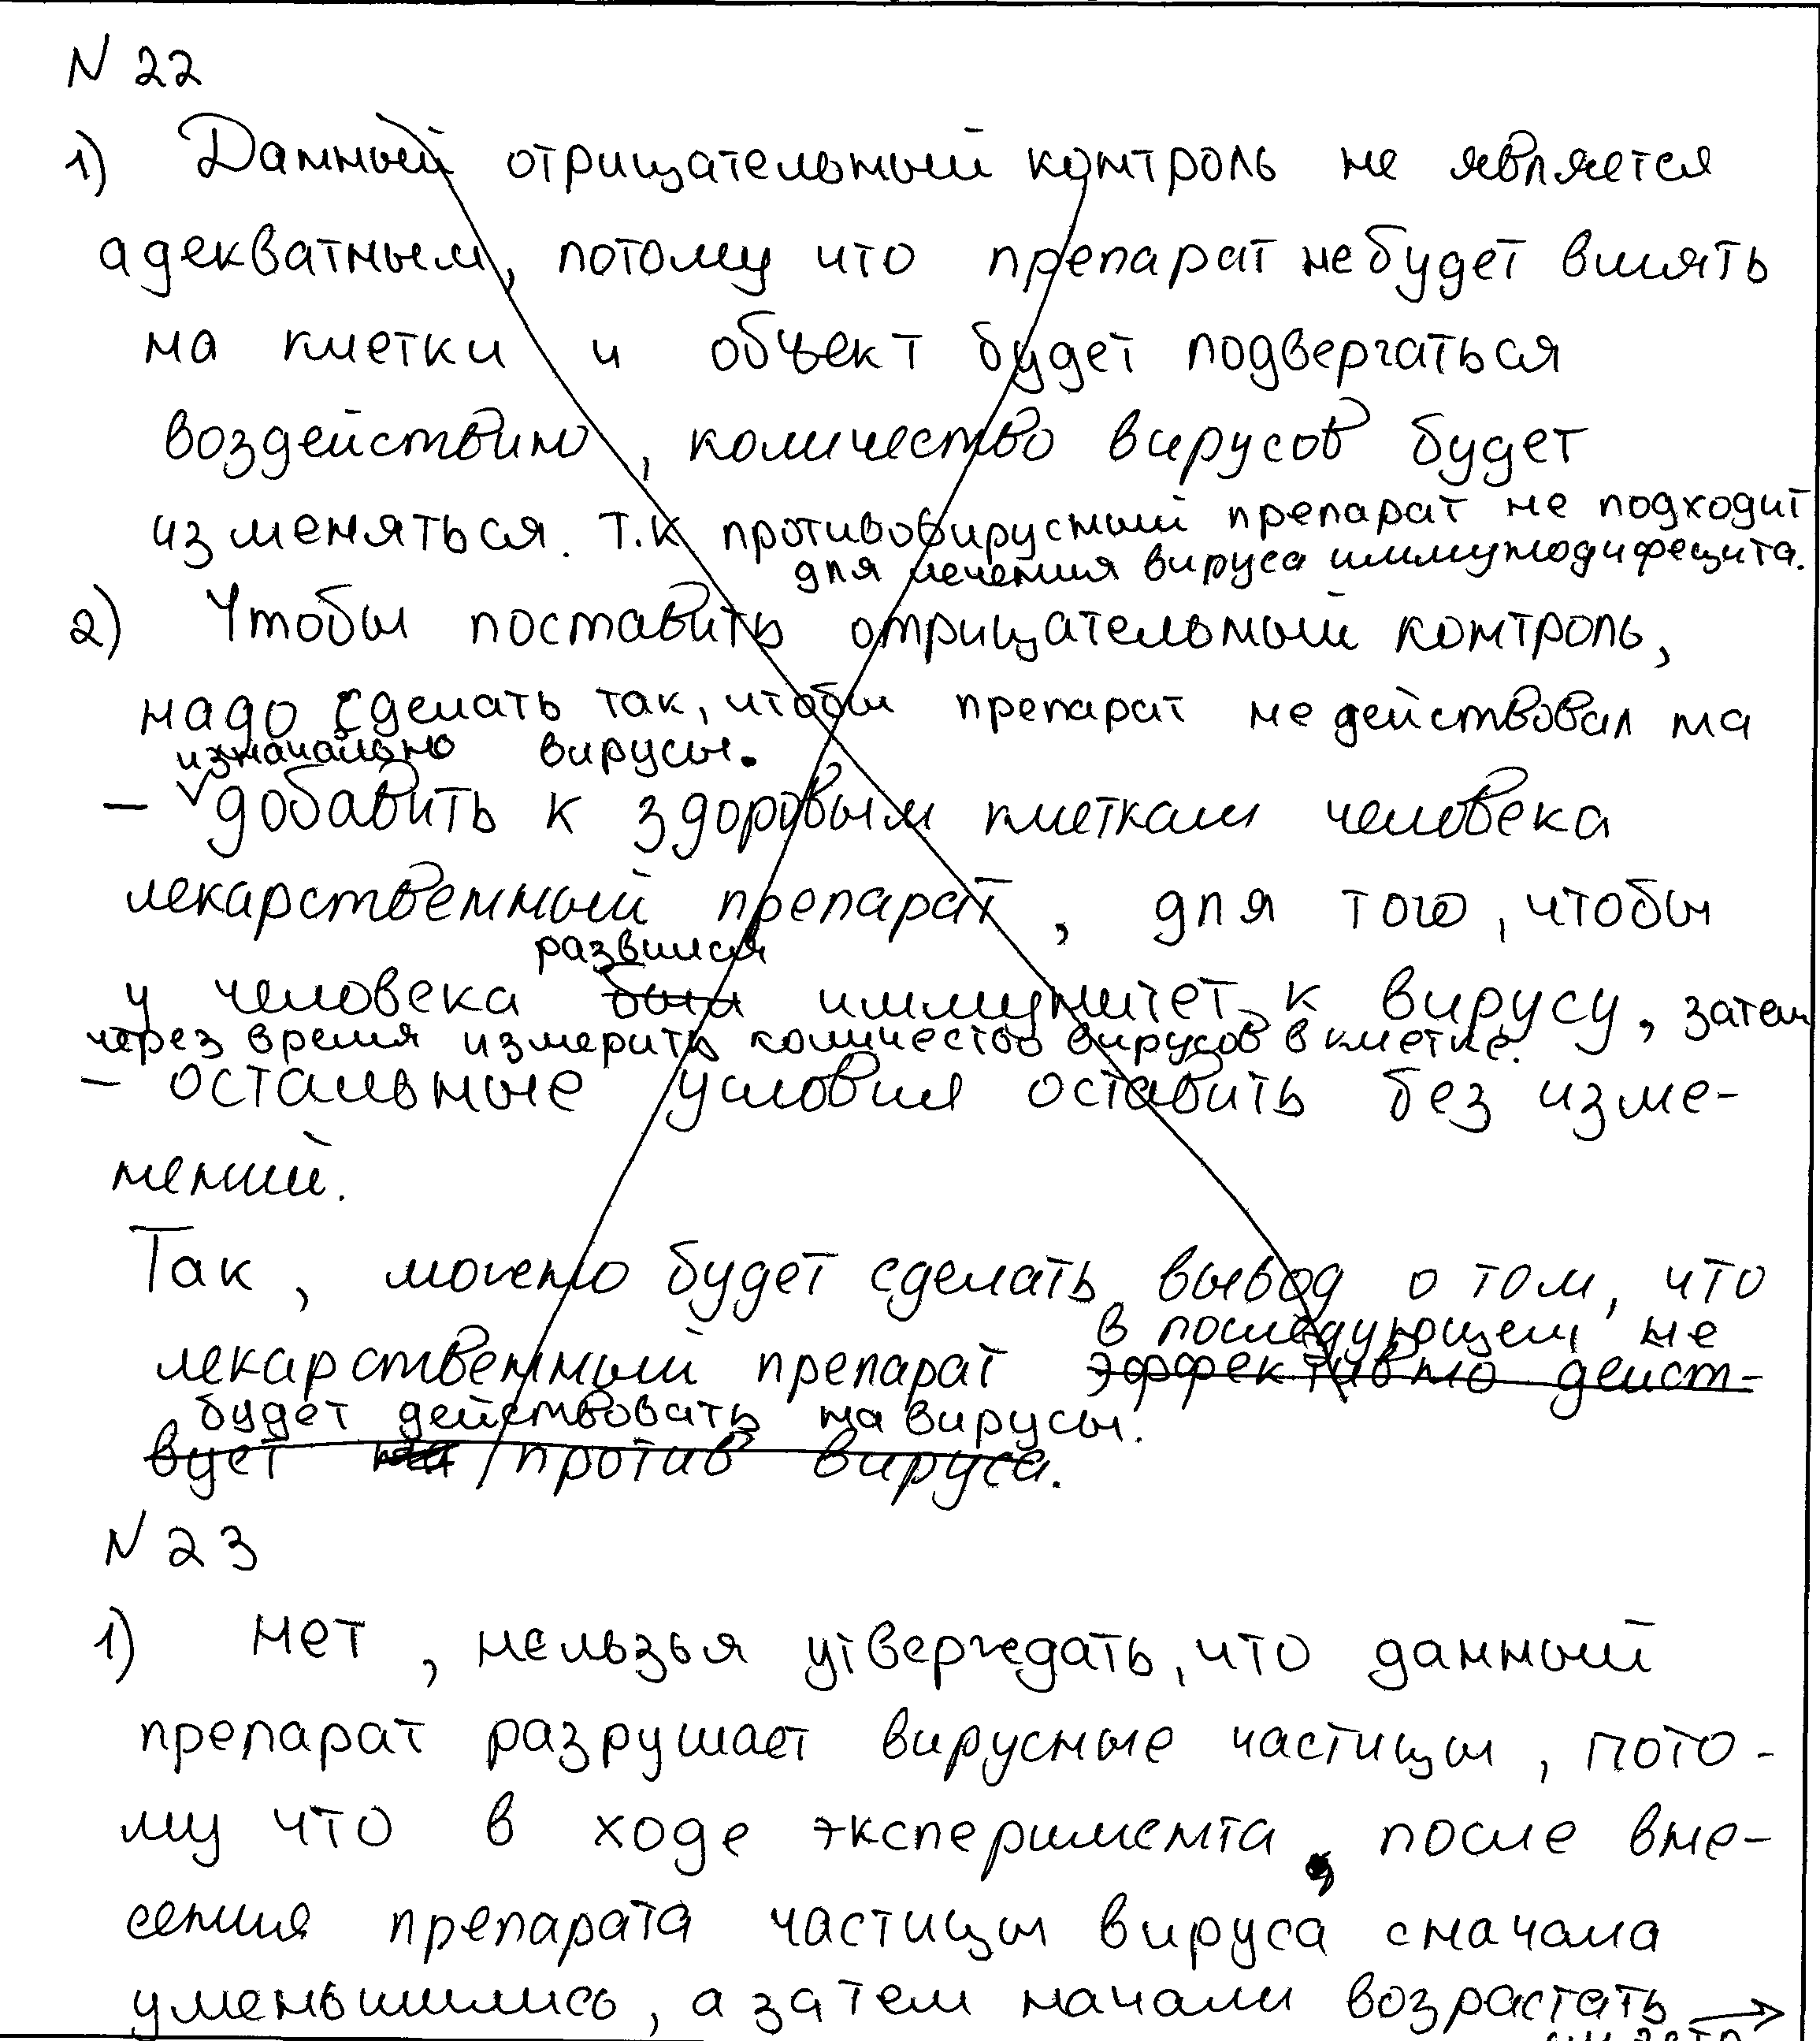 N 22
1) Данный отрицательный контроль не является
адекватным, потому что препарат не будет влиять
на клетки и объект будет подвергаться
воздействию, количество вирусов будет
изменяться. т.к противовирусный препарат не подходит
для лечения вируса иммунодифецита.
2) Чтобы поставить отрицательный контроль,
надо сделать так, чтобы препарат не действовал на
изначально вирусы.
– добавить к здоровым клеткам человека
лекарственный препарат, для того, чтобы
развился
у человека был иммунитет к вирусу, затем
через время измерить количество вирусов в клетке.
– остальные условия оставить без изме-
нений.
Так, можно будет сделать вывод о том, что
в последующем не
лекарственный препарат эффективно дейст-
будет действовать на вирусы.
вует на против вируса.
N 23
1) Нет, нельзья утверждать, что данный
препарат разрушает вирусные частицы, пото-
му что в ходе эксперимента, после вне-
сения препарата частицы вируса сначала
уменьшились, а затем начали возрастать →